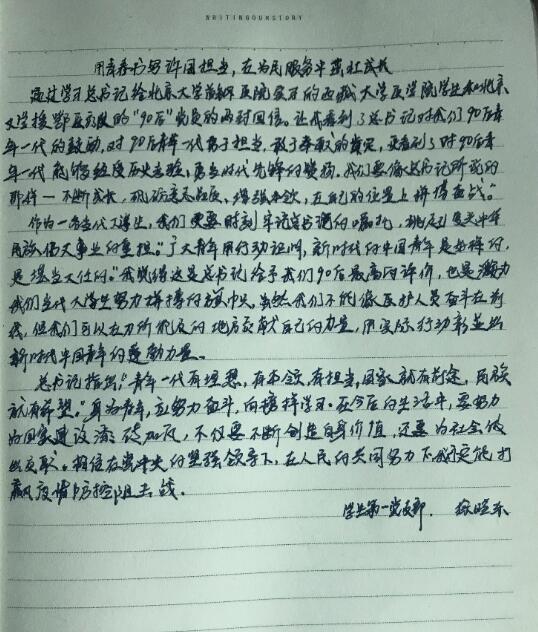 WRITINGOURSTORY
用青春书写许国担当，在为民服务中茁壮成长
通过学习总书记给北京大学首都医院实习的西藏大学医学院学生和北京
大学援鄂医疗队的"90后"党员的两封回信。让我看到了总书记对我们90后青
年一代的鼓励，对90后青年一代勇于担当、敢于奉献的肯定，更看到了对90后青
年一代能够经受历史考验、勇当时代先锋的赞扬，我们要像总书记所说的
那样—不断成长，砥砺意志品质、增强本领，在自己的位置上拼搏奋战。"
作为一名当代大学生，我们更要时刻牢记总书记的嘱托，挑起复兴中华
民族伟大事业的重担。"广大青年用行动证明，新时代的中国青年是好样的，
是堪当大任的。"我觉得这是总书记给予我们90后最高的评价，也是激励
我们当代大学生努力拼搏的。虽然我们不能像医护人员奋斗在前
线，但我们可以在力所能及的地方贡献自己的力量，用实际行动彰显出
新时代中国青年的蓬勃力量。
总书记指出："青年一代有理想，有本领，有担当，国家就有前途，民族
就有希望。"身为青年，应努力奋斗，向榜样学习。在今后的生活中，要努力
为国家建设添砖加瓦，不仅要不断创造自身价值，还要为社会做
出贡献。相信在党中央的坚强领导下，在人民的共同努力下，我们定能打
赢疫情防控阻击战。
学生第一党支部 徐晓东